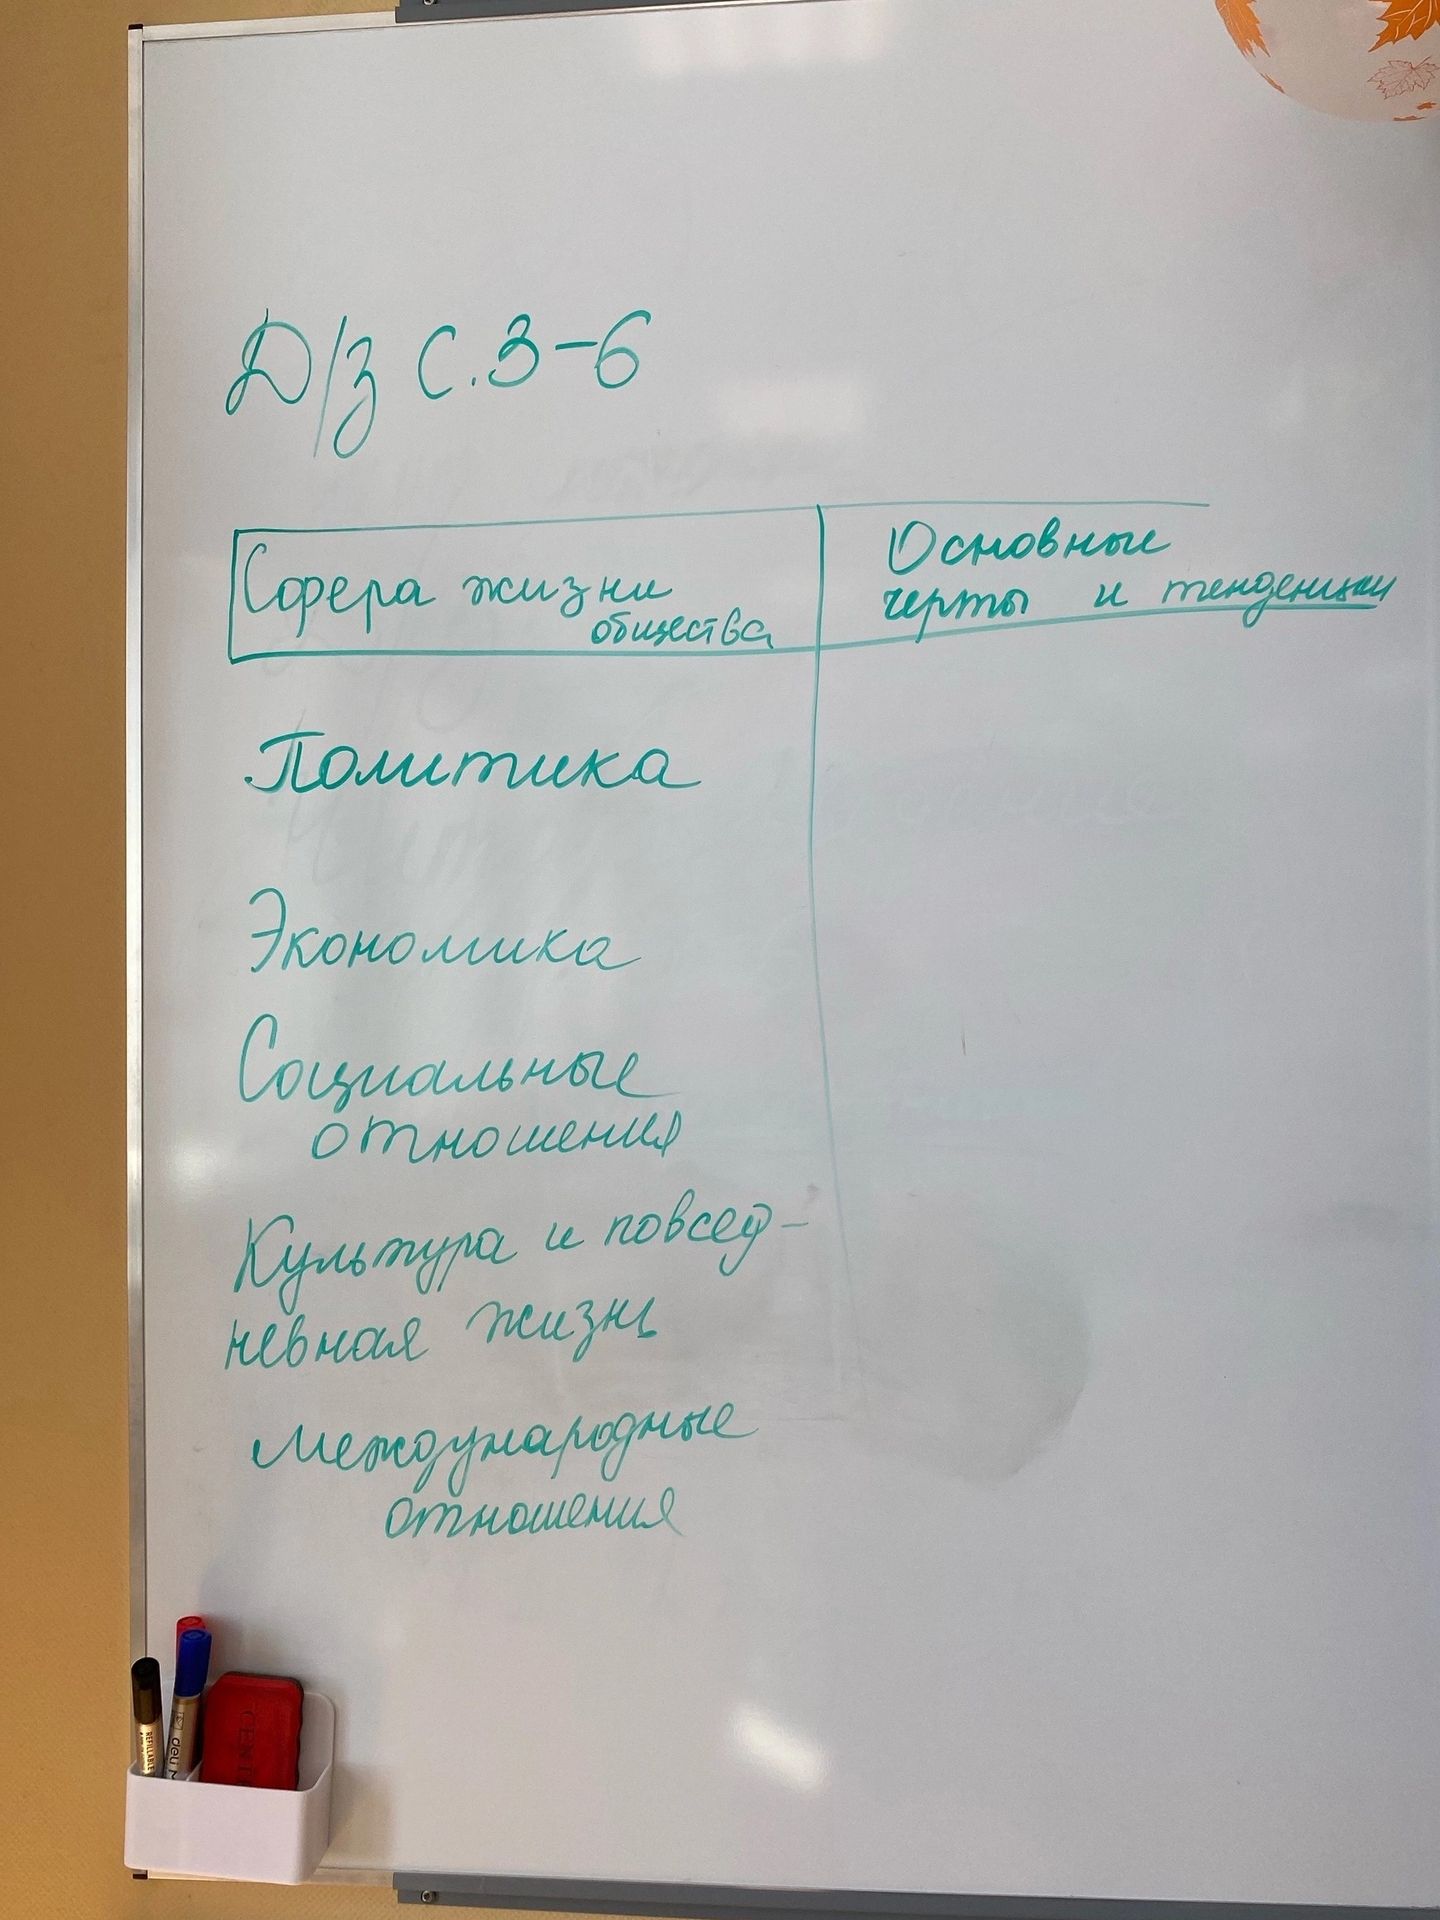 Д/з с. 3-6
Сфера жизни
общества
Основные
черты и тенденции
Политика
Экономика
Социальные
отношения
Культура и повсед-
невная жизнь
Международные
отношения
REFILLABLE
deli
CENT